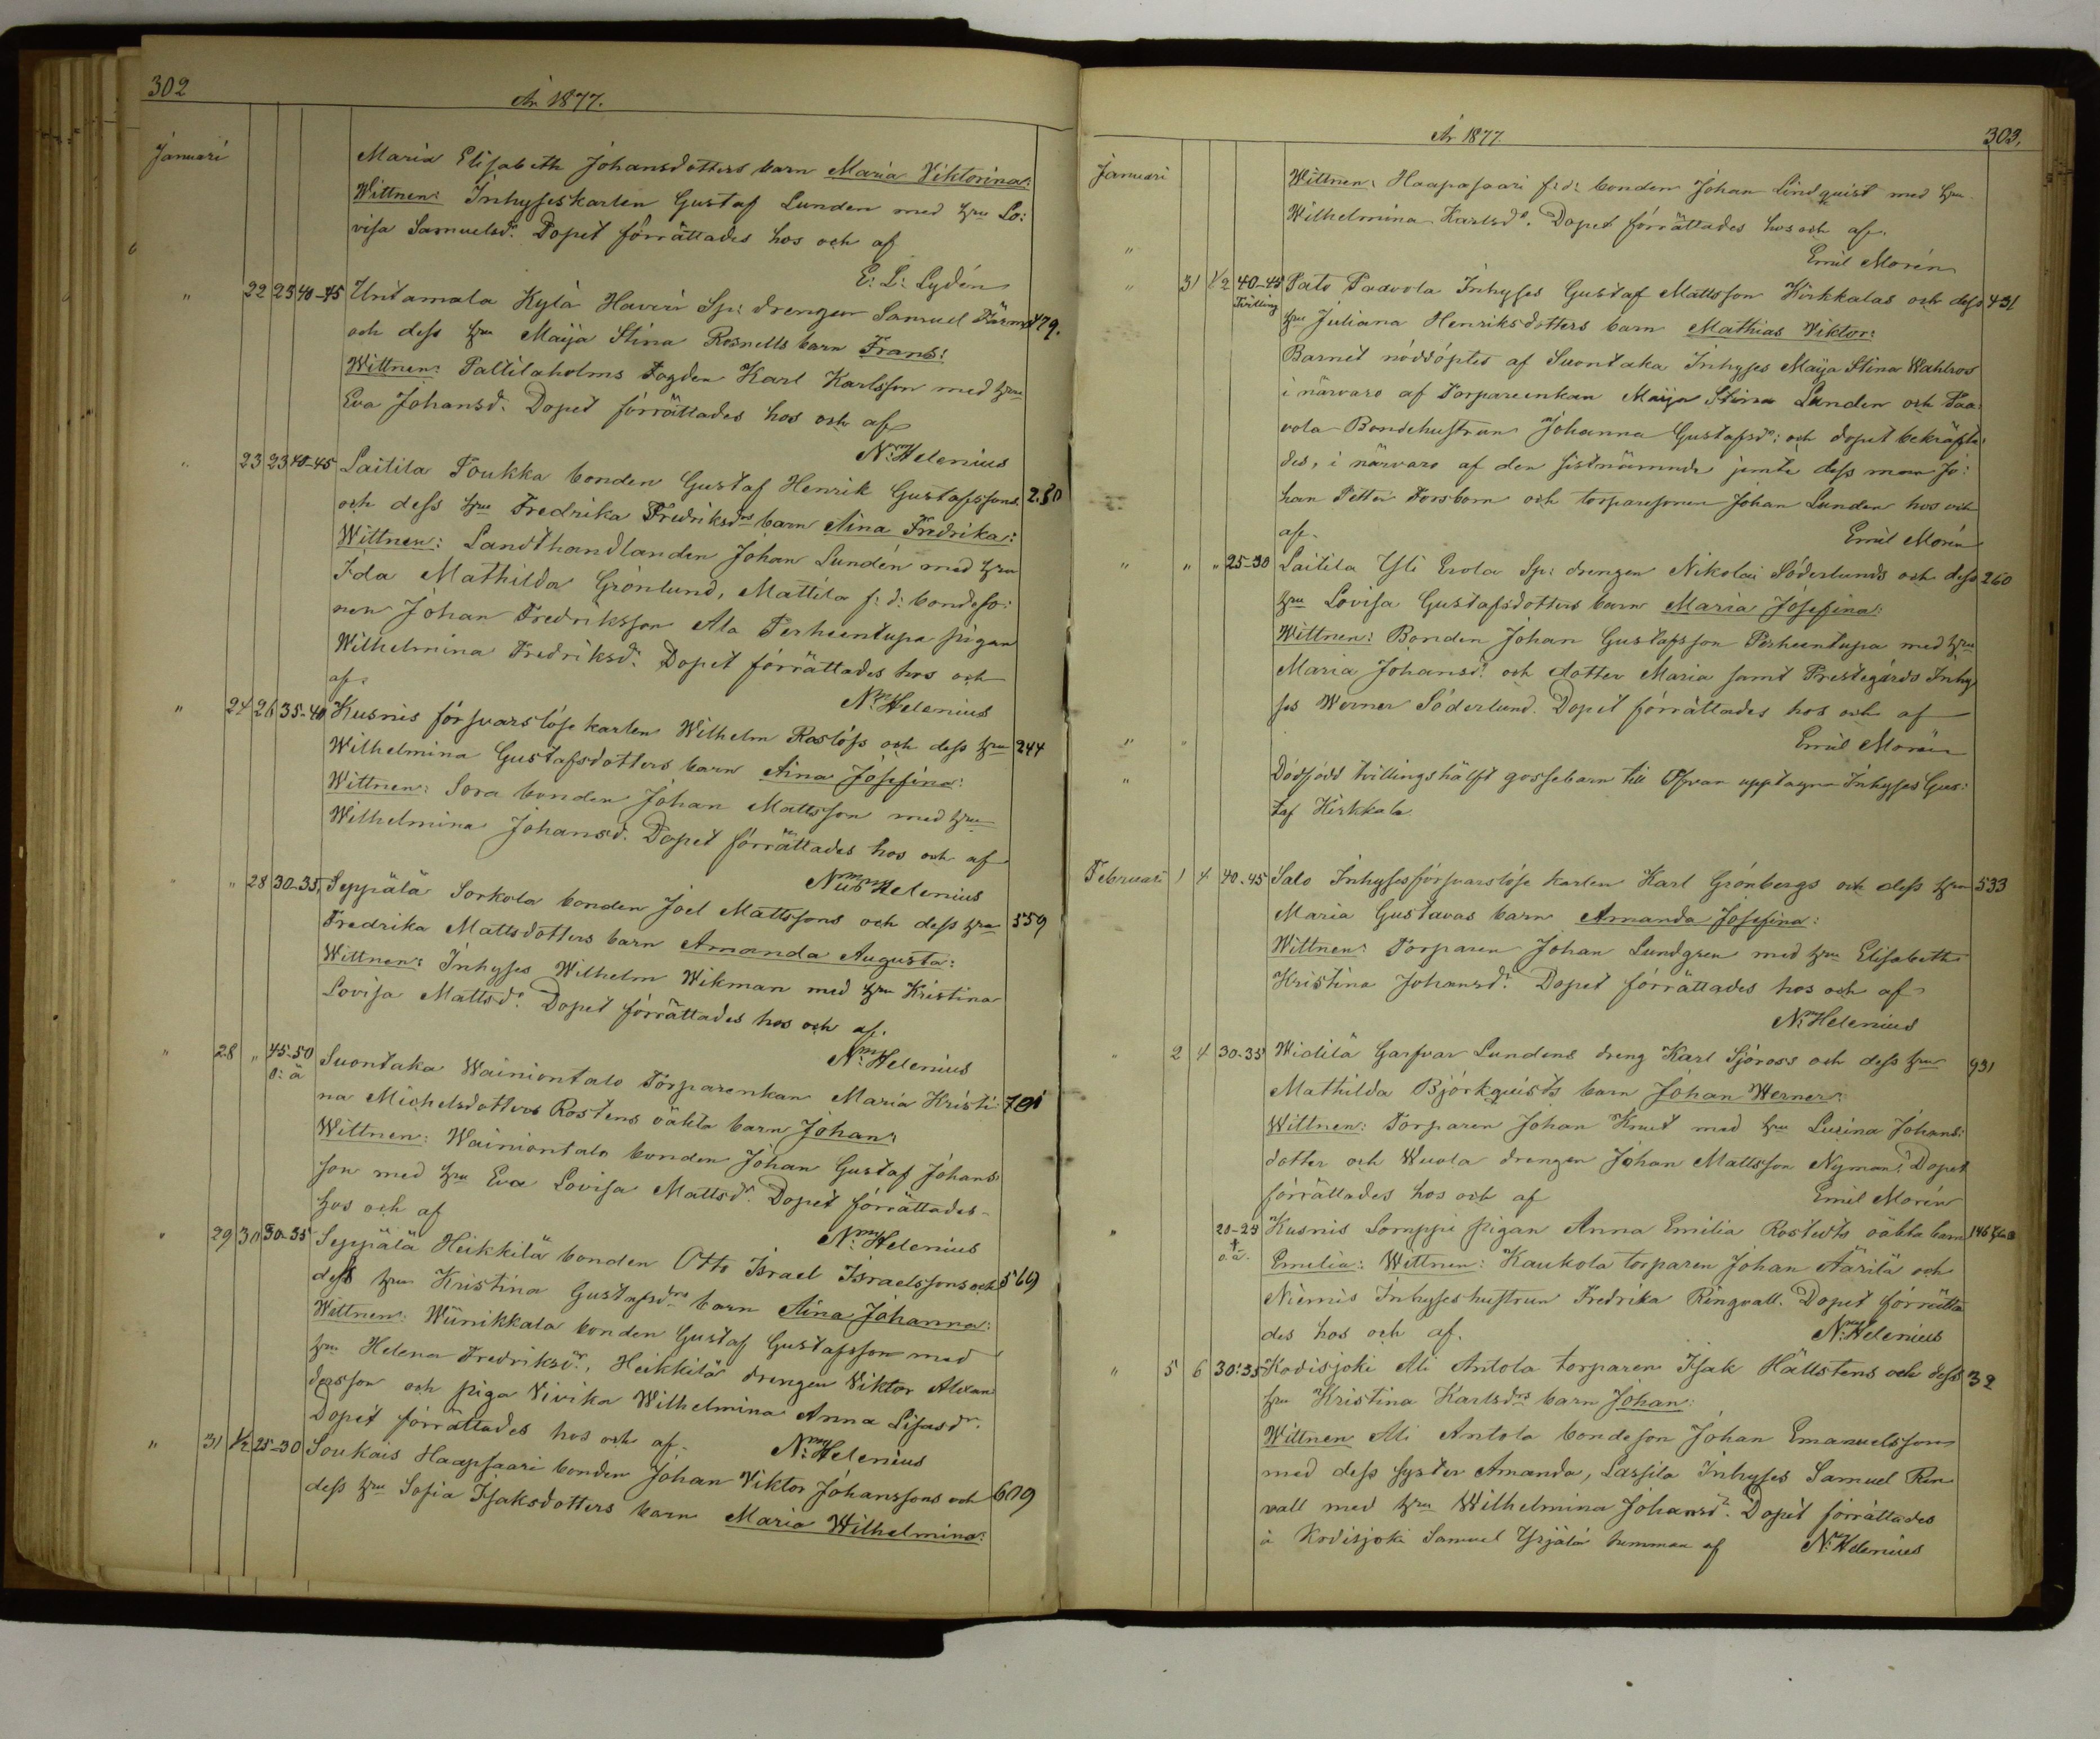 302
År 1877.
Januari
Maria Elisabeth Johansdotters barn Maria Viktorina:
Wittnen: Inhyseskarlen Gustaf Lunden med hru Lo:
visa Samuelsdr. Dopet förrättades hos och af
E: L: Lydén
" 22 23 40-45 Untamala Kylä Haviri Sp: drengen Samuel 479.
och dess hru Maija Stina Rosnells barn Frans:
Wittnen: Palttilaholms Fogden Karl Karlsson med hru
Eva Johansd. Dopet förrättades hos och af
N: Helenius
" 23 23 40-45 Laitila Poukka bonden Gustaf Henrik Gustafssons 230
och dess hru Fredrika Fredriksdrs barn Aina Fredrika:
Wittnen: Landthandlanden Johan Lundén med hru
Ida Mathilda Grönlund, Mattila f: d: bondeso:
nen Johan Fredriksson Ala Perheentupa pigan
Wilhelmina Fredriksd. Dopet förrättades hos och
af.
N: Helenius
" 24 26 35-40 Kusnis försvarslöse karlen Wilhelm Roslöfs och dess hru 244
Wilhelmina Gustafsdotters barn Aina Josefina:
Wittnen: Sora bonden Johan Mattsson med hru
Wilhelmina Johansd. Dopet förrättades hos och af
Nils Helenius
" 28 30-35 Seppälä Sorkola bonden Joel Mattssons och dess hru 559
Fredrika Mattsdotters barn Amanda Augusta:
Wittnen: Inhyses Wilhelm Wikman med hru Kristina
Lovisa Mattsdr. Dopet förrättades hos och af.
N: Helenius
" 28 " 45-50 Suontaka Wainiontalo Torparenkan Maria Kristi: 701
o: ä
na Michelsdotters Rostens oäkta barn Johan:
Wittnen: Wainiontalo bonden Johan Gustaf Johans:
son med hru Eva Lovisa Mattsdr. Dopet förrättades
hos och af
N: Helenius
" 29 30 30-35 Seppälä Heikkilä bonden Otto Israel Israelssons och 569
dess hru Kristina Gustafsdrs barn Aina Johanna:
Wittnen: Wiinikkala bonden Gustaf Gustafsson med
hru Helena Fredriksdr., Heikkilä drengen Viktor Alexan
dersson och piga Vivika Wilhelmina Anna Lisasdr.
Dopet förrättades hos och af.
N: Helenius
" 31 1/2 25-30 Soukais Haapsaari bonden Johan Viktor Johanssons och 609
dess hru Sofia Isaksdotters barn Maria Wilhelmina:
År 1877.
303.
Januari
Wittnen: Haapasaari f: d: bonden Johan Lindquist med hru
Wilhelmina Karlsdr. Dopet förrättades hos och af.
"
Emil Morén
" 31 1/2 40-45 Pato Paavola Inhyses Gustaf Mattsson Kirkkalas och dess 431
Tvilling
hru Juliana Henriksdotters barn Mathias Viktor:
Barnet nöddöptes af Suontaka Inhyses Maija Stina Wahlros
i närvaro af Torpareenkan Maija Stina Lunden och Paa:
vola Bondehustrun Johanna Gustafsdr: och dopet bekräfta:
des, i närvaro af den sistnämnde jemte dess man Jo:
han Petter Forsbom och torparesonen Johan Lunden hos och
af.
Emil Morén
" " " 25-30 Laitila Yli Erola Sp: drengen Nikolai Söderlunds och dess 260
hru Lovisa Gustafsdotters barn Maria Josefina:
Wittnen: Bonden Johan Gustafsson Perheentupa med hru
Maria Johansdr och dotter Maria samt Prestegårds Inhy
ses Werner Söderlund. Dopet förrättades hos och af
" "
Emil Morén
" Dödfödd tvillingshälft gossebarn till Ofvan upptagna Inhyses Gus:
taf Kirkkala.
Februari 1 4 40-45 Salo Inhyses försvarslöse karlen Karl Grönbergs och dess hru 533
Maria Gustavas barn Amanda Josefina:
Wittnen: Torparen Johan Lundgren med hru Elisabeth
Kristina Johansdr. Dopet förrättades hos och af
N: Helenius
" 2 4 30-35 Widilä Garfvar Lundens dreng Karl Sjöross och dess hru 931
Mathilda Björkquists barn Johan Werner:
Wittnen: Torparen Johan Knut med hru Lusina Johans:
dotter och Wuola drengen Johan Mattsson Nyman. Dopet
förrättades hos och af
Emil Morén
" 20-25 Kusnis Sornppi pigan Anna Emilia Rostedts oäkta barn 146
o: ä.
Emelia: Wittnen: Kaukola torparen Johan Äärilä och
Niemis Inhyseshustrun Fredrika Ringvall. Dopet förrätta
des hos och af.
N: Helenius
" 5 6 30-35 Kodisjoki Ali Antola torparen Isak Hällstens och dess 32
hru Kristina Karlsdrs barn Johan:
Wittnen Ali Antola bondeson Johan Emanuelsson
med dess syster Amanda, Lassila Inhyses Samuel Rin
vall med hru Wilhelmina Johansdr. Dopet förrättades
å Kodisjoki Samuel Yrjälä hemman af
N: Helenius